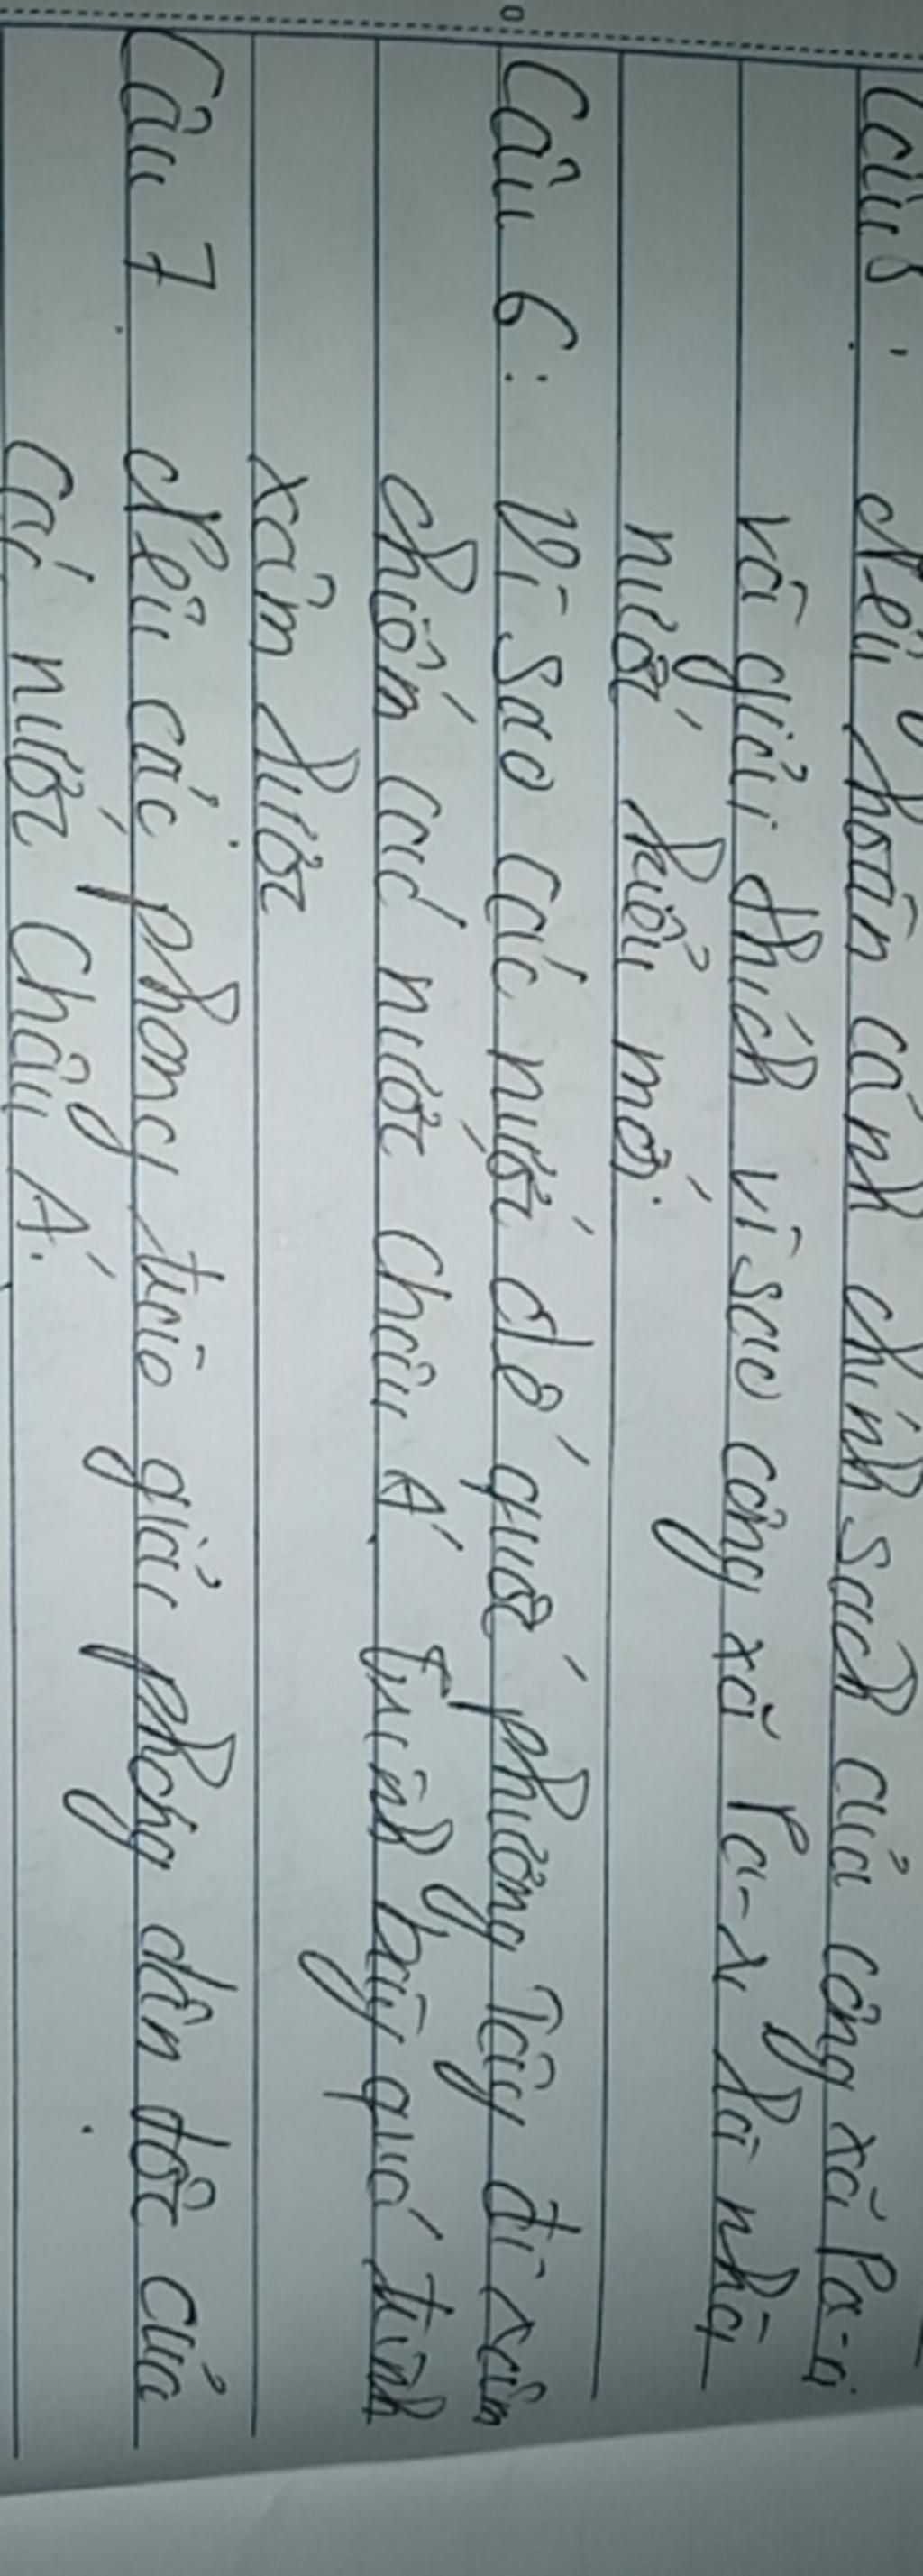 Câu 5: Nêu hoàn cảnh chính sách của công xã Pa-ri
và giải thích vì sao công xã Pa-ri là nhà
nước kiểu mới.
Câu 6: Vì sao các nước đế quốc phương Tây đi xâm
chiếm các nước Châu Á. Trình bày quá trình
xâm lược
Câu 7. Nêu các phong trào giải phóng dân tộc của
các nước Châu Á.